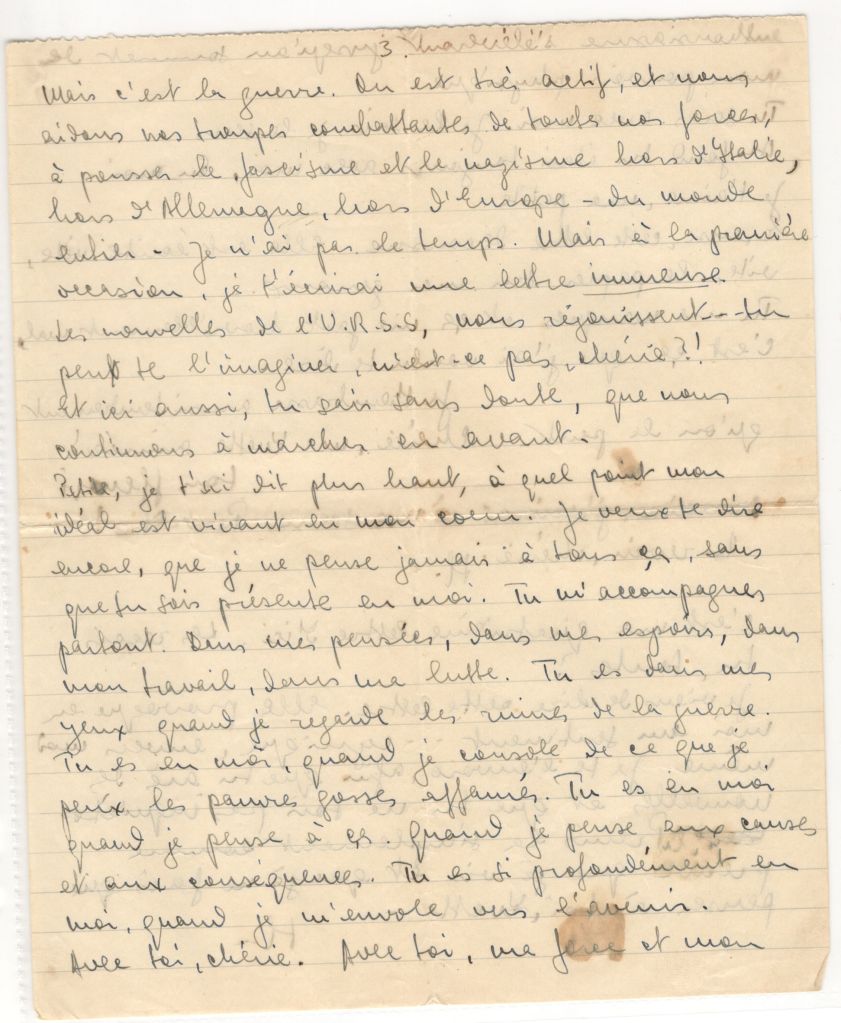 3.
Mais c'est la guerre. On est très actif, et nous
aidons nos troupes combattantes de toutes nos forces,
à pousser le fascisme et le nazisme hors d'Italie,
hors d'Allemagne, hors d'Europe - du monde
entier - Je n'ai pas le temps. Mais à la première
occasion, je t'écrirai une lettre immense.
Les nouvelles de l'U.R.S.S, nous réjouissent -- tu
peux te l'imaginer, n'est-ce pas, chérie,?!
Et ici aussi, tu sais sans doute, que nous
continuons à marcher en avant.
Petite, je t'ai dit plus haut, à quel point mon
idéal est vivant en mon coeur. Je veux te dire
encore, que je ne pense jamais à tous ça, sans
que tu sois présente en moi. Tu m'accompagnes
partout. Dans mes pensées, dans mes espoirs, dans
mon travail, dans ma lutte. Tu es dans mes
yeux quand je regarde les ruines de la guerre.
Tu es en moi, quand je console de ce que je
peux les pauvres gosses affamés. Tu es en moi
quand je pense à ça. Quand je pense aux causes
et aux conséquences. Tu es si profondément en
moi, quand je m'envole vers l'avenir.
Avec toi, chérie. Avec toi, ma force et mon